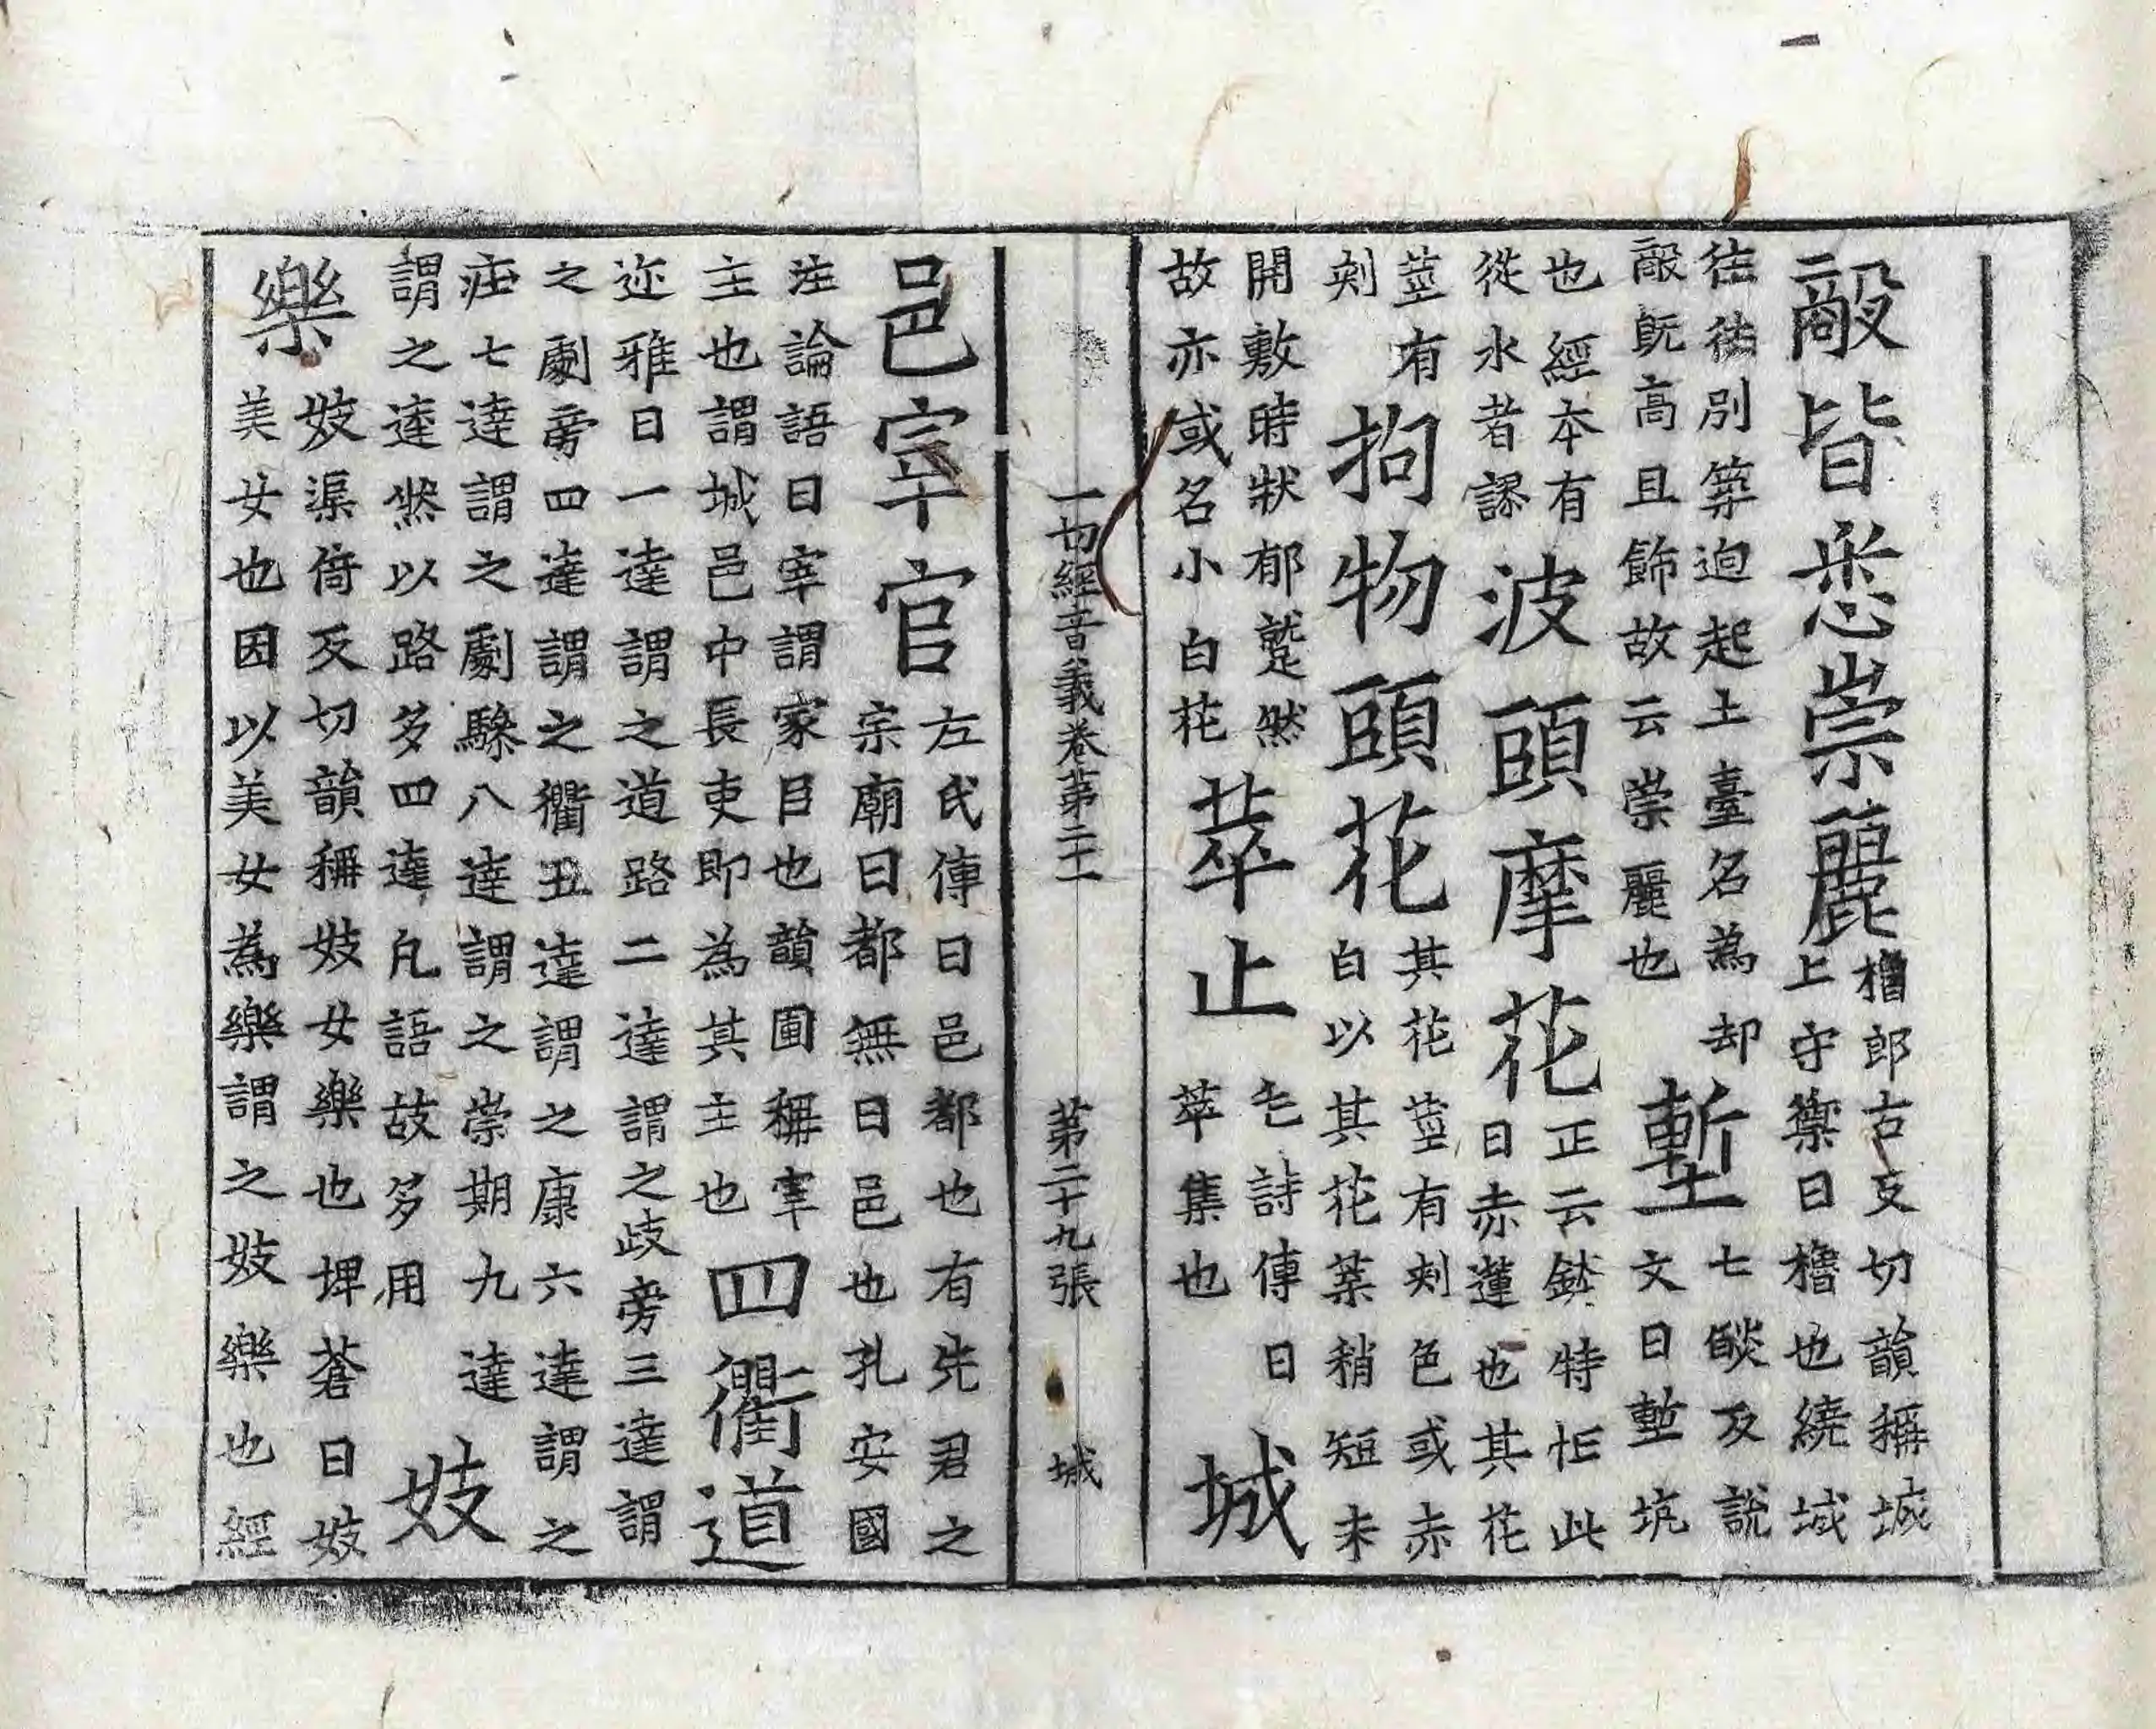 敵皆悉崇麗
櫓郎古反切韻稱城
上守禦曰櫓也繞城
往往別築逈起土臺名為却
敵既高且飾故云崇麗也
塹
七燄反說
文曰塹坑
也經本有
從水者謬
波頭摩花
正云鉢特忙此
曰赤蓮也其花
莖有
刺
拘物頭花
其花莖有刺色或赤
白以其花葉稍短未
開敷時狀郁蹙然
故亦或名小白花
萃止
毛詩傳曰
萃集也
城
一切經音義卷第二十一 第二十九張 城
邑宰官
左氏傳曰邑都也有先君之
宗廟曰都無曰邑也孔安國
注論語曰宰謂家臣也韻圃稱宰
主也謂城邑中長吏即為其主也
四衢道
迩雅曰一達謂之道路二達謂之歧旁三達謂
之劇旁四達謂之衢五達謂之康六達謂之
莊七達謂之劇驂八達謂之崇期九達
謂之逵然以路多四達凡語故多用
妓
樂
妓渠倚反切韻稱妓女樂也埤蒼曰妓
美女也因以美女為樂謂之妓樂也經